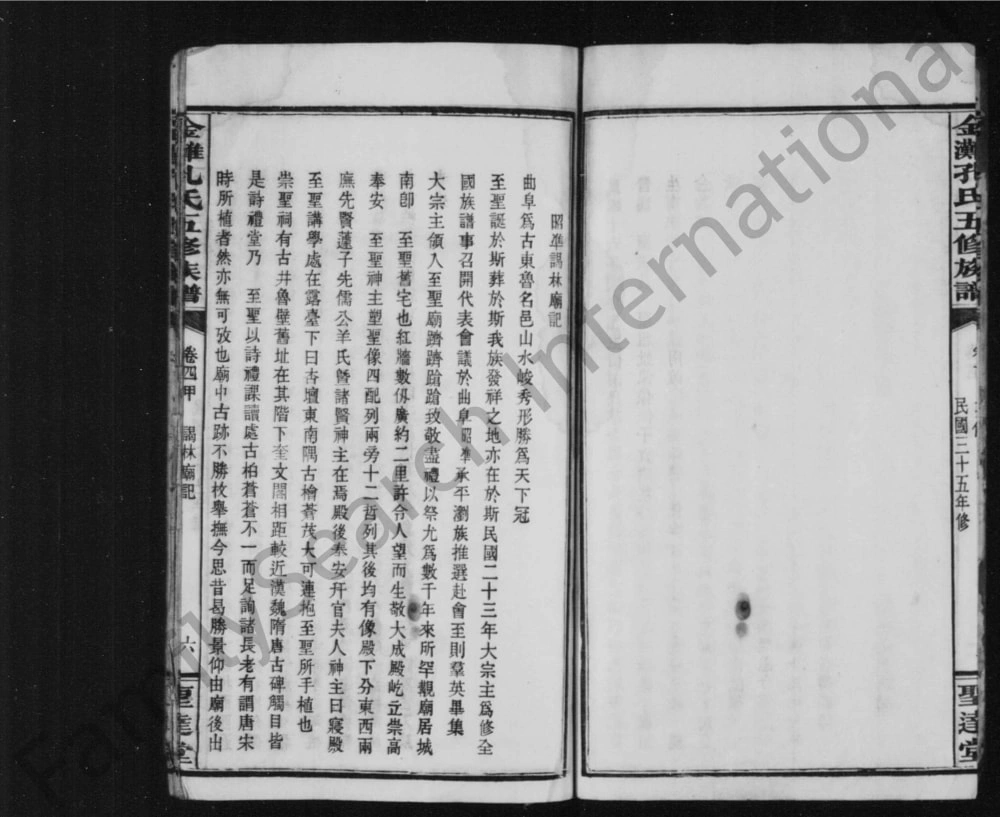 金灘孔氏五修族譜
民國三十五年修
聖達堂
昭準謁林廟記
曲阜為古東魯名邑山水峻秀形勝為天下冠
至聖誕於斯葬於斯我族發祥之地亦在於斯民國二十三年大宗主為修全
國族譜事召開代表會議於曲阜昭準承平瀏族推選赴會至則羣英畢集
大宗主領入至聖廟躋躋蹌蹌致敬盡禮以祭尤為數千年來所罕觀廟居城
南卽　至聖舊宅也紅牆數仞廣約二里許令人望而生敬大成殿屹立崇高
奉安　至聖神主塑聖像四配列兩旁十二哲列其後均有像殿下分東西兩
廡先賢蘧子先儒公羊氏曁諸賢神主在焉殿後奉安幵官夫人神主曰寢殿
至聖講學處在露臺下曰杏壇東南隅古檜蒼茂大可連抱至聖所手植也
崇聖祠有古井魯壁舊址在其階下奎文閣相距較近漢魏隋唐古碑觸目皆
是詩禮堂乃　至聖以詩禮課讀處古柏蒼蒼不一而足詢諸長老有謂唐宋
時所植者然亦無可攷也廟中古跡不勝枚舉撫今思昔曷勝景仰由廟後出
金灘孔氏五修族譜
卷四甲　謁林廟記
六
聖達堂
FamilySearch International